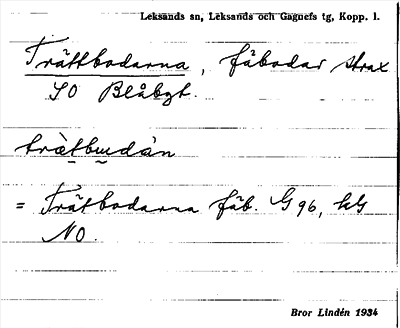 Leksands sn, Leksands och Gagnefs tg, Kopp. l.
Trättbodarna, fäbodar strax
SO Blåbgt.
trætbudàn
= Trätbodarna fäb. G 96, kG
NO.
Bror Lindén 1934